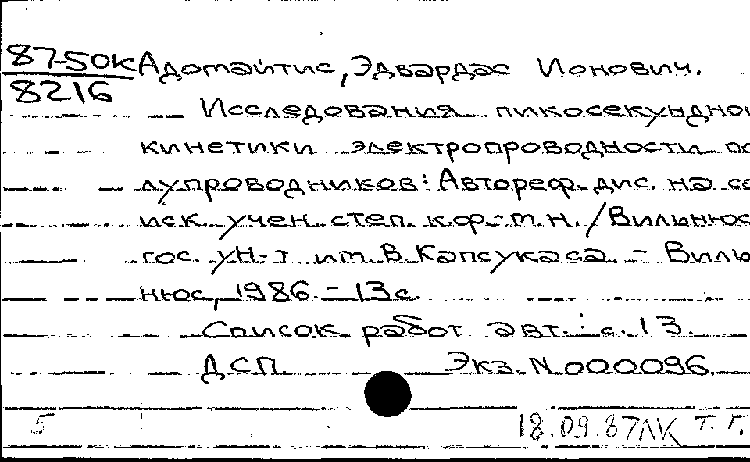 87-50К Адомайтис, Эдвардас Ионович.
8216
Исследования пикосекундно
кинетики электропроводности по
лупроводников: Автореф. дис. на со
иск. учен. степ. к.ф.-м.н. / Вильнюс
гос. ун-т им. В. Капсукаса. - Виль
нюс, 1986. - 13 с.
Список работ авт.: с. 13.
ДСП Экз. N 000096
5 18.09.87 ЛК Т. Г.